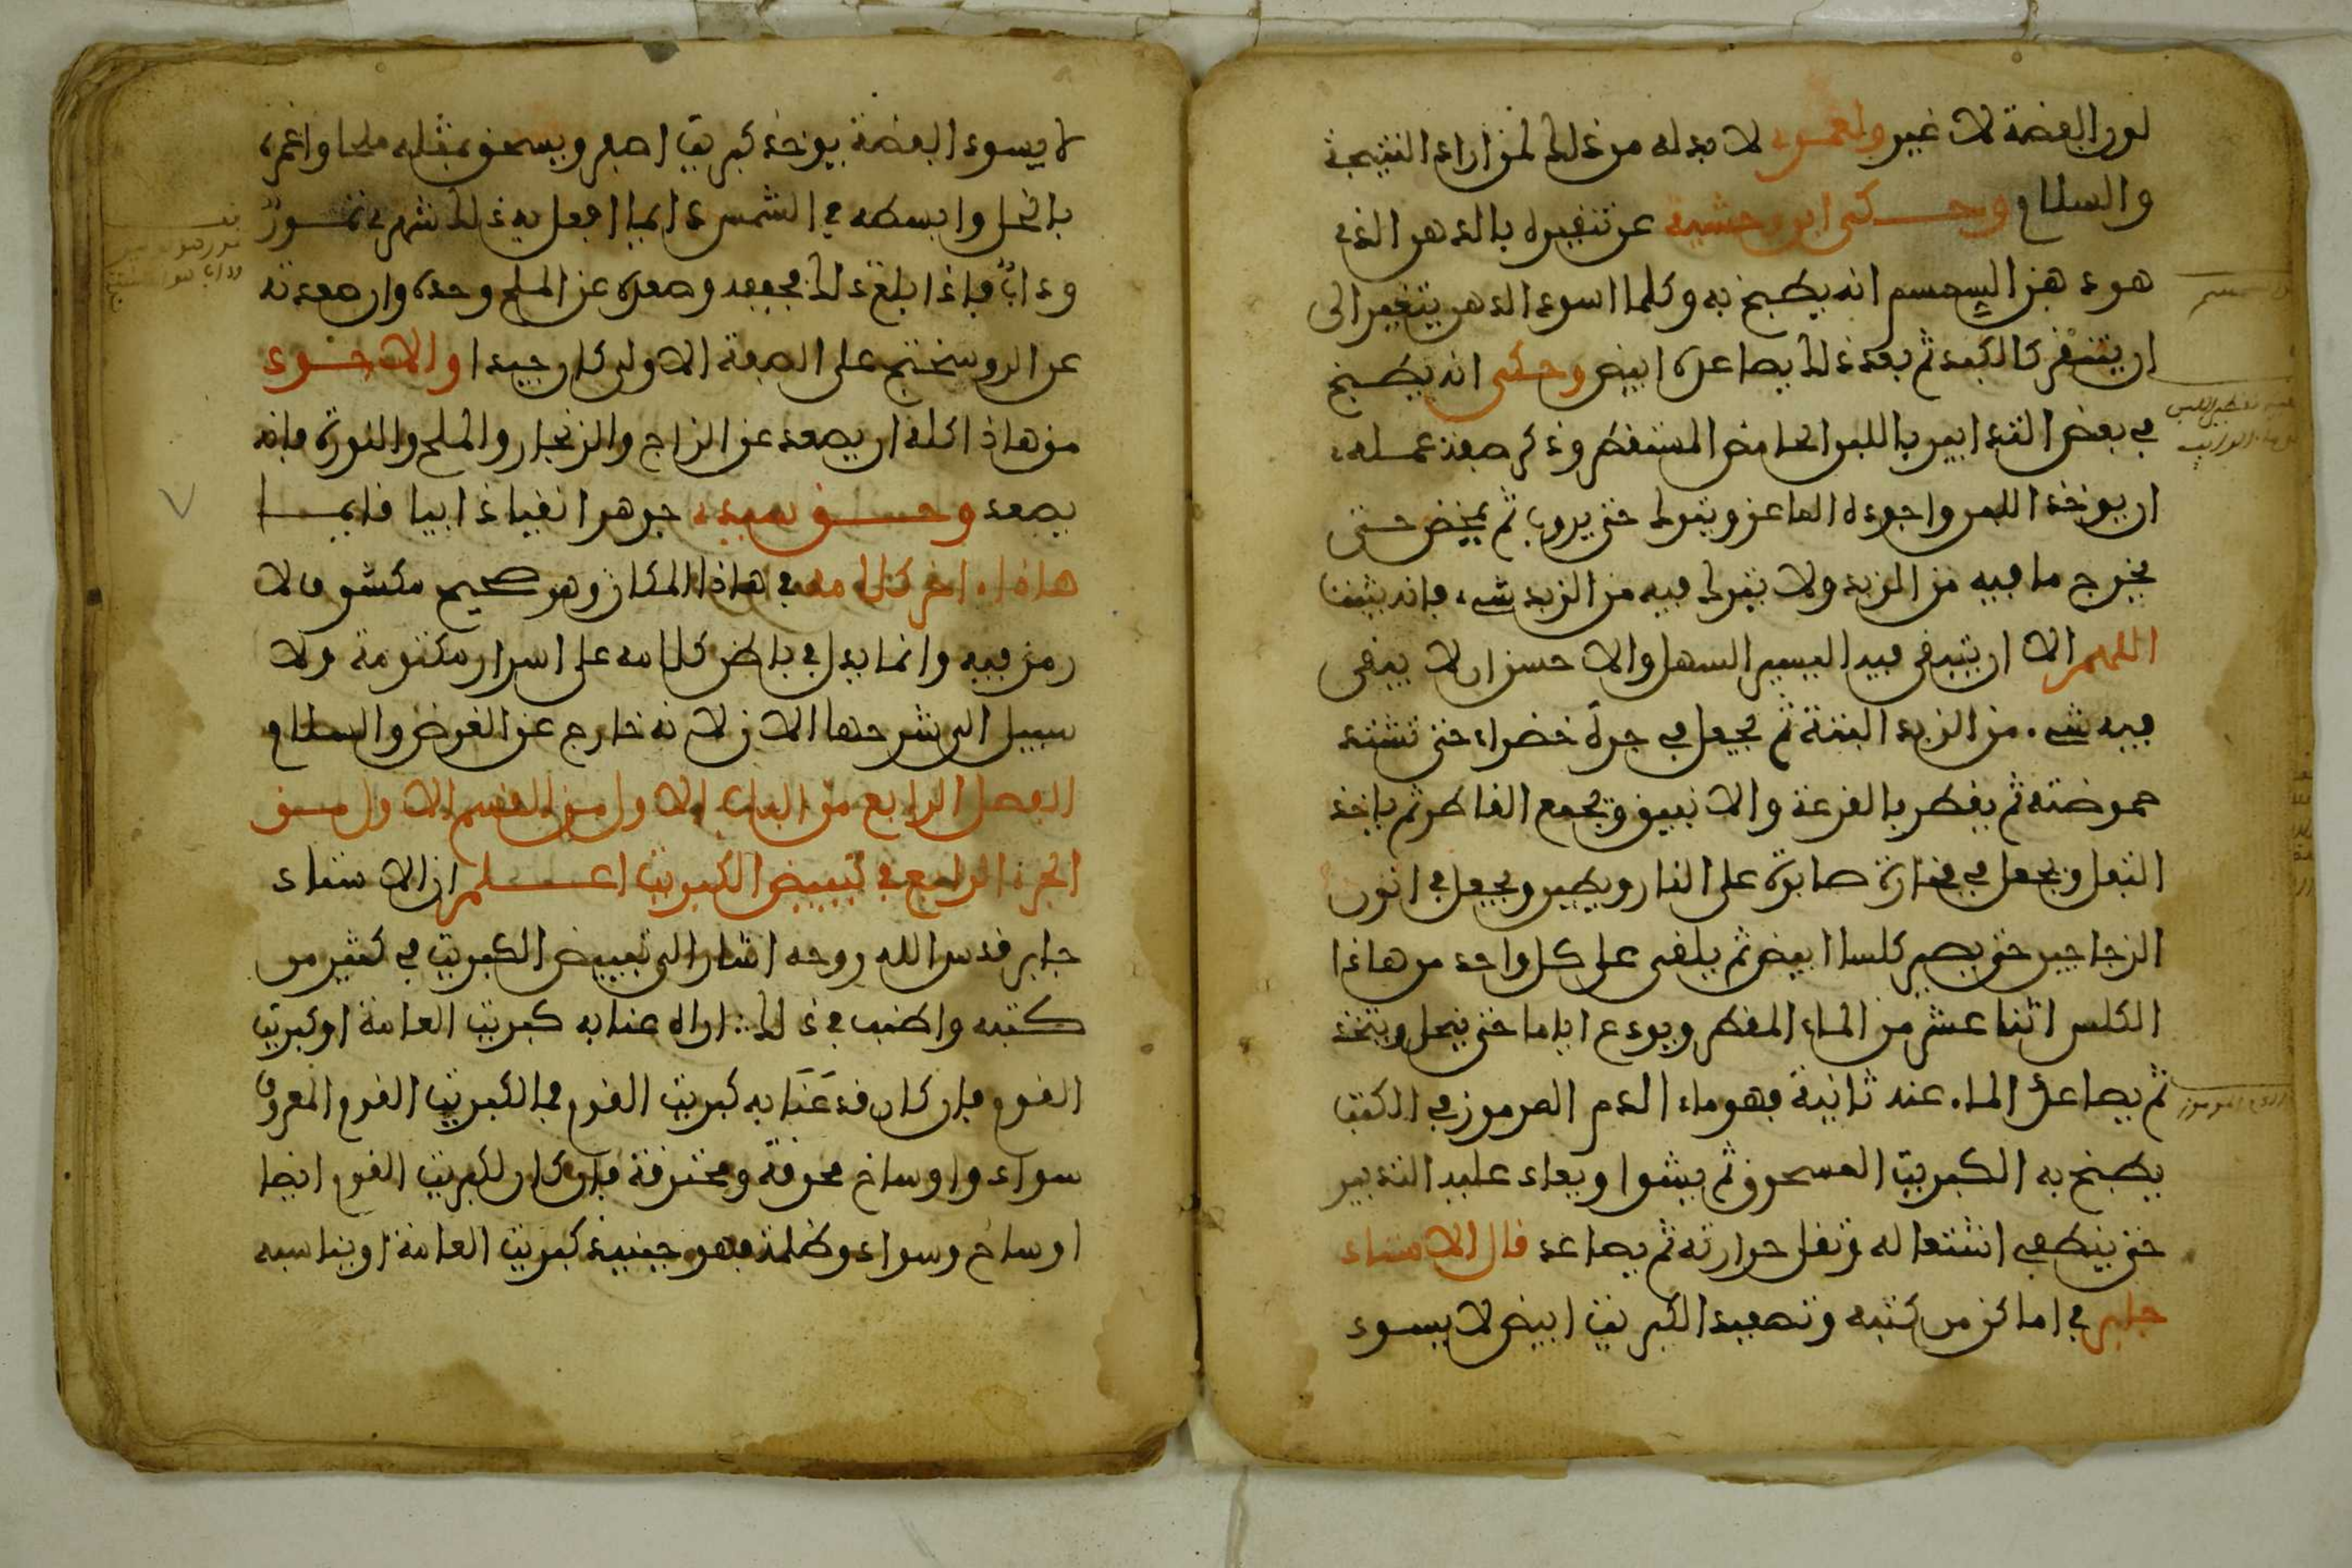 لون الفضة لا غير ولعمري لا بد له من ذلك لمن اراد النتيجة
والسلام ويحكى ابن وحشية عن تنقيره بالدهن الذي
هو دهن السمسم انه يطبخ به وكلما اسود الدهن يتغير الى
ان يتنقر كالكبد ثم بعد ذلك يصاعده ابيض وحكى انه يطبخ
في بعض التدابير باللبن الحامض المستقطر وذكر صفة عمله
ان يوخذ اللبن واجوده الماعز ويترك حتى يروب ثم يمخض حتى
يخرج ما فيه من الزبد ولا يترك فيه من الزبد شيء فانه
اللهم الا ان يبقى فيه اليسير السهل والاحسن ان لا يبقى
فيه شيء من الزبد البتة ثم يجعل في جرة خضراء حتى تشتد
حموضته ثم يقطر بالقرعة والانبيق ويجمع القاطر ثم ياخذ
الثفل ويجعل في فخارة صابرة على النار ويطين ويجعل في اتون
الزجاجين حتى يصير كلسا ابيض ثم يلقى على كل واحد من هاذا
الكلس اثنا عشر من الماء المقطر ويودع اياما حتى ينحل ويتخذ
ثم يصاعد الماء عنه ثانية فهو ماء الدم المرموز في الكتب
يطبخ به الكبريت المسحوق ثم يشوا ويعاد عليه التدبير
حتى ينطفي اشتعاله وتقل حرارته ثم يصاعد قال الاستاد
جابر في اماكن من كتبه وتصعيد الكبريت ابيض لا يسود
لا يسود الفضة يوخذ كبريت اصفر ويسحق بمثله ملحا واغمره
بالخل وابسطه في الشمس دايما افعل به ذلك شهر في تموز
وداب فاذا بلغ ذلك فجففه وصعده عن الملح وحده وان صعدته
عن الروسختج على الصفة الاولى كان جيدا والاجود
من هاذا كله ان يصعد عن الزاج والزنجار والملح والنورة فانه
يصعد وحق سيدي جوهرا نقيا ذايبا قايما
هاذا اخر كلامه في هاذا المكان وهو صحيح مكشوف لا
رمز فيه وانما يدل في باطن كلامه على اسرار مكتومة ولا
سبيل الى شرحها الان لانه خارج عن الغرض والسلام
الفصل الرابع من الباب الاول من القسم الاول من
الجزء الرابع في تبييض الكبريت اعلم ان الاستاد
جابر قدس الله روحه اشار الى تبييض الكبريت في كثير من
كتبه واطنب في ذلك اراه عنا به كبريت العامة او كبريت
القوم فان كان قد عَنَا به كبريت القوم فالكبريت القوم المعروف
سواد واوساخ محرقة ومحترقة فان كان لكبريت القوم ايضا
اوساخ وسواد وظلمة فهو حينيذ كبريت العامة او يناسبه